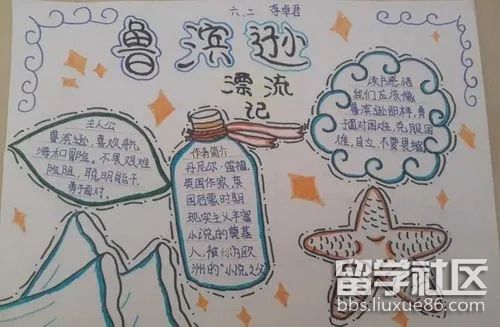 六、二 李卓君
鲁滨逊
漂流
记
主人公
鲁滨逊，喜欢航
海和冒险。不畏艰难
险阻，聪明能干，
勇于面对。
作者简介
丹尼尔·笛福，
英国作家，英
国启蒙时期
现实主义丰富
小说的奠基
人，被称为欧
洲的“小说之父
读后感悟
我们应该像
鲁滨逊那样，勇
于面对困难，克服困
难，自立，不要畏缩
留学社区
bbs.liuxue86.com